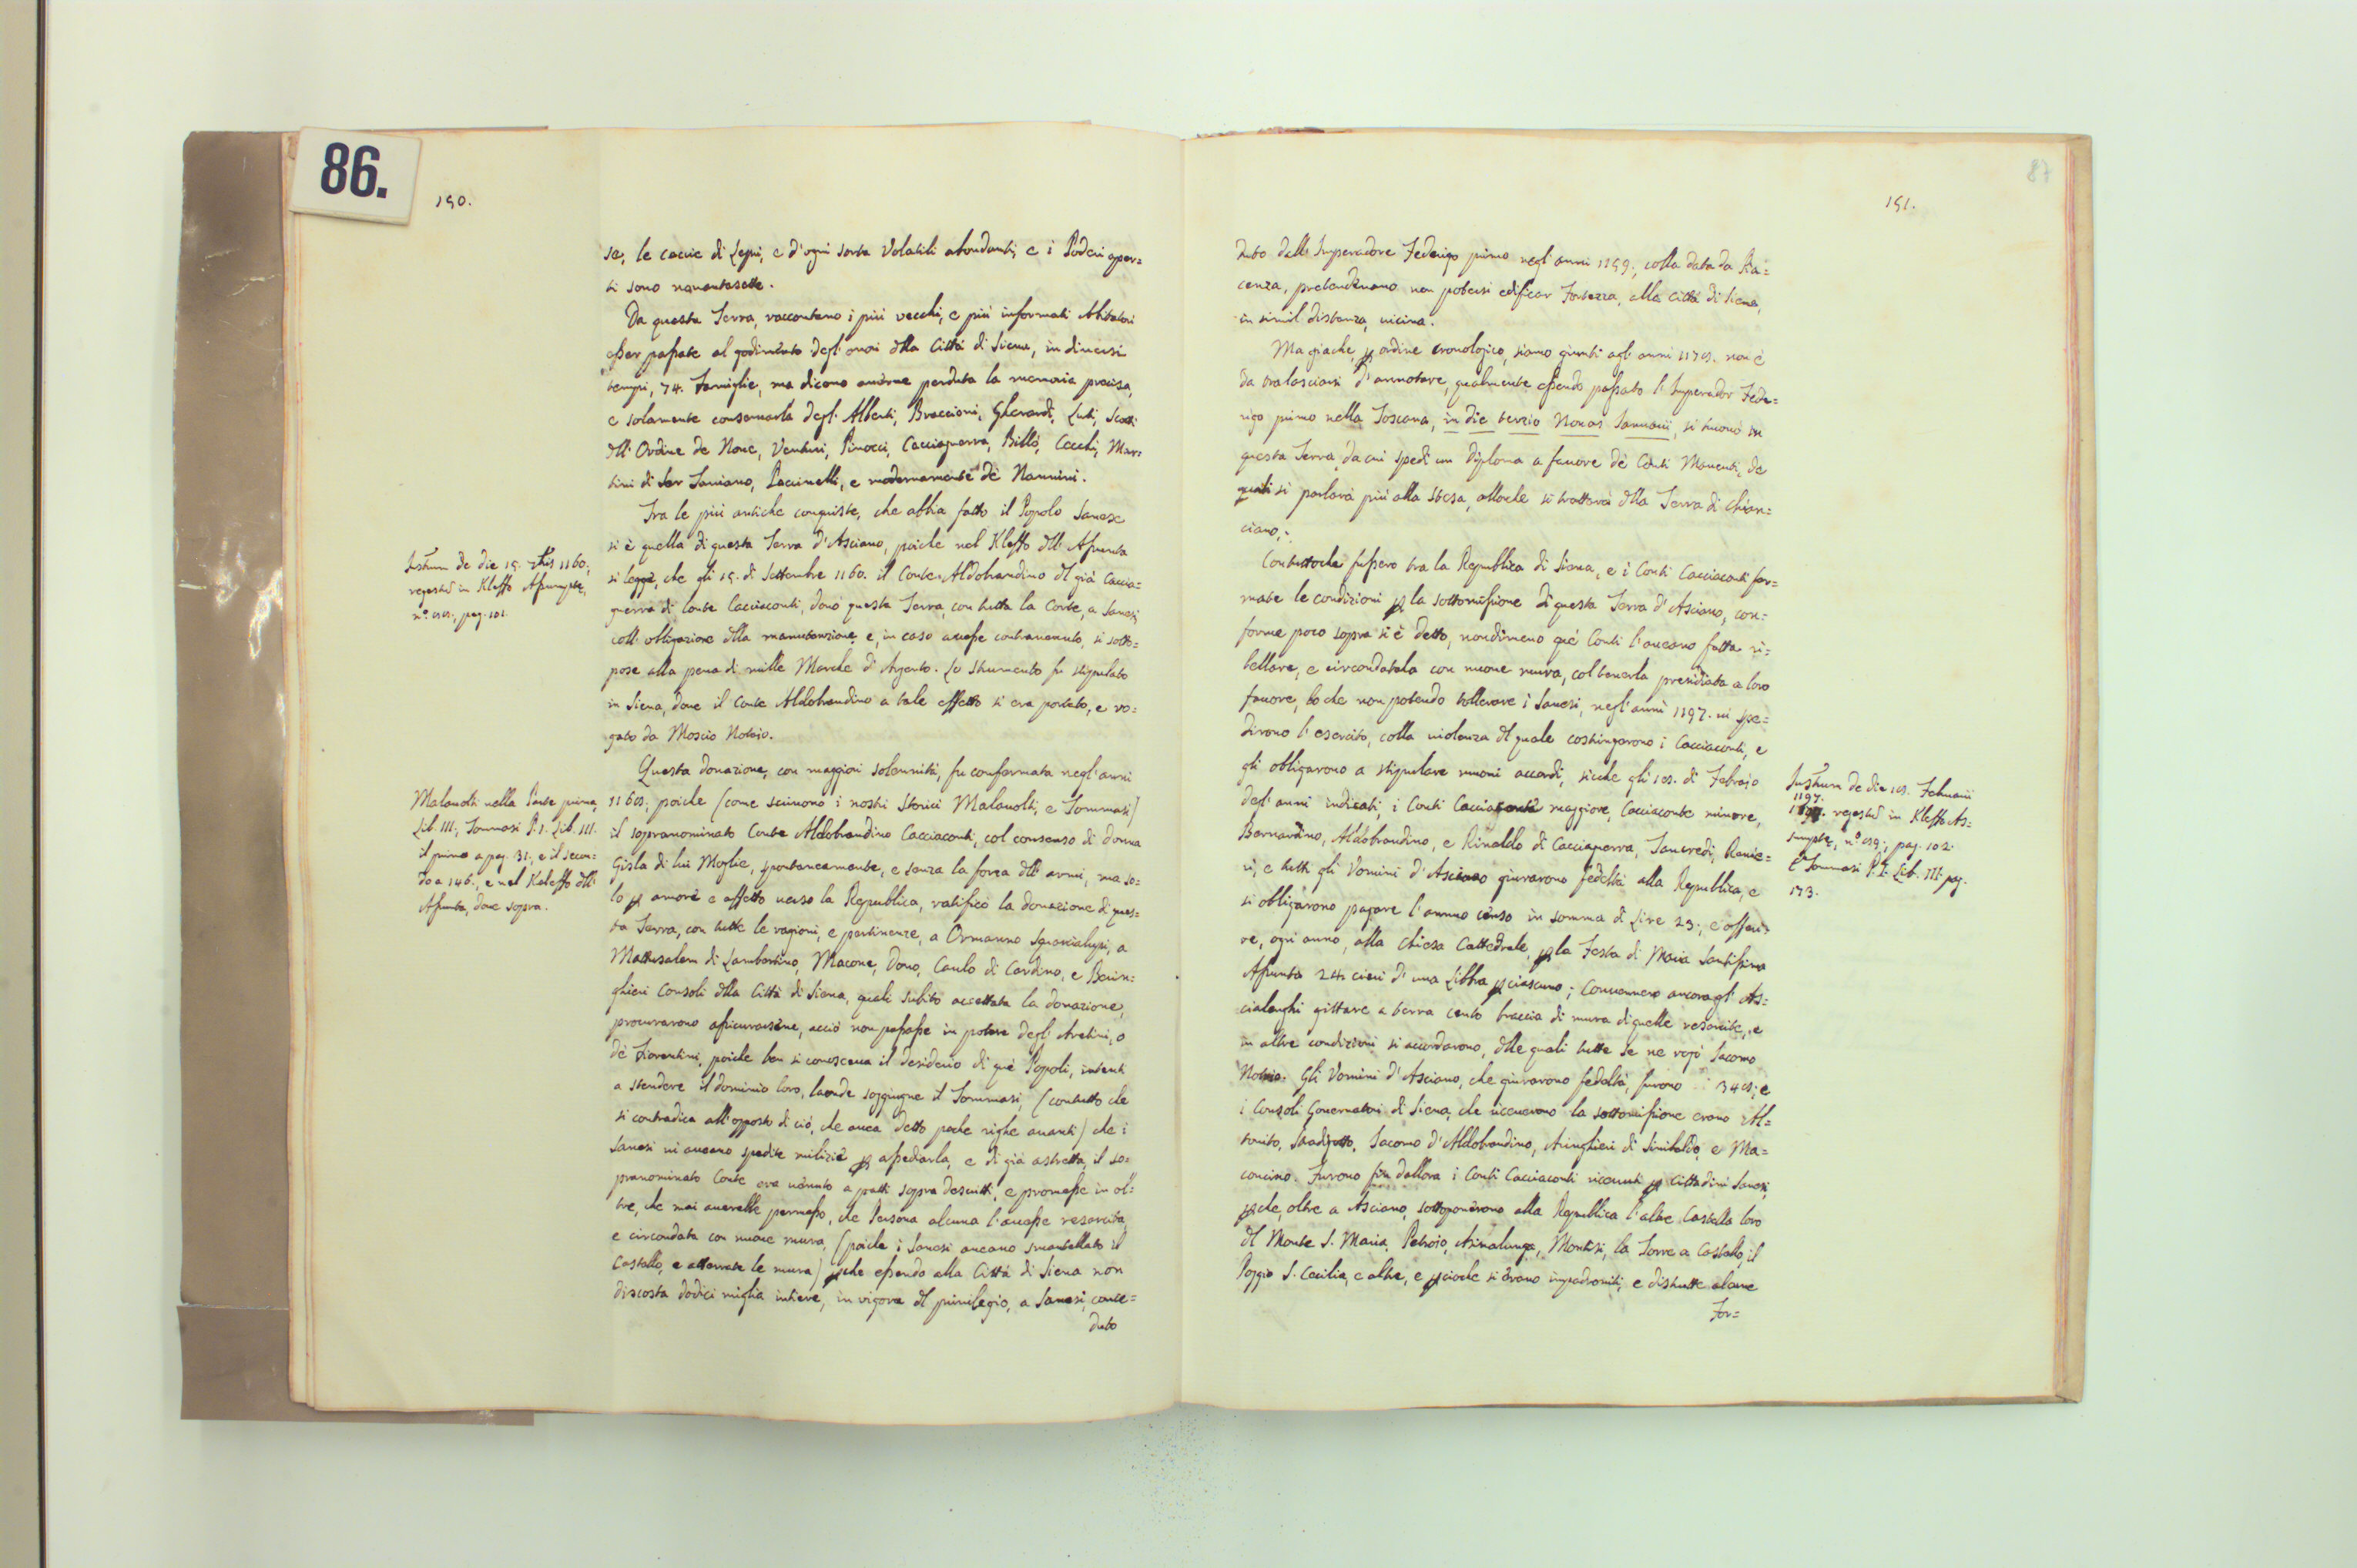 86.
150.
se, le caccie di Lepri, e d'ogni sorta Volatili abondanti, e i Poderi aper=
ti sono novantasette.
Da questa Terra, raccontano i più vecchi, e più informati Abitatori
esser passate al godimento degl'onori dlla Città di Siena, in diuersi
tempi, 74. Famiglie, ma dicono auerne perduta la memoria precisa,
e solamente conseruarla degl'Alberti, Braccioni, Gherardi, Luti, Scotti
dll'Ordine de Noue, Venturi, Pinocci, Cacciaguerra, Billò, Cecchi, Mar=
tini di Ser Saniano, Paccinelli, e modernamente de Nannini.
Tra le più antiche conquiste, che abbia fatto il Popolo Sanese
si è quella di questa Terra d'Asciano, poiche nel Kleffo dll'Assunta
si legge, che gli 15. di Settembre 1160. il Conte Aldobrandino dl già Caccia=
guerra di Conte Cacciaconti, donò questa Terra, con tutta la Corte, a Sanesi,
coll'obligazione dlla manutenzione, e, in caso auesse contrauenuto, si sotto=
pose alla pena di mille Marche d'Argento. Lo Strumento fu stipulato
in Siena, doue il Conte Aldobrandino a tale effetto si era portato, e ro=
gato da Moscio Notaio.
Questa donazione, con maggiori solennità, fu confermata negl'anni
1168, poiche (come scriuono i nostri Storici Malauolti, e Tommasi)
il sopranominato Conte Aldobrandino Cacciaconti, col consenso di donna
Gisla di lui Moglie, spontaneamente, e senza la forza dll'armi, ma so=
lo p amore e affetto uerso la Republica, ratificò la donazione di ques=
ta Terra, con tutte le ragioni, e pertinenze, a Ormanno Squarcialupi, a
Mattusalem di Lambertino, Macone, Dono, Caulo di Cardino, e Berin=
ghieri Consoli dlla Città di Siena, quali subito accettata la donazione,
procurarono assicurarsene, acciò non passasse in potere degl'Aretini, o
de Fiorentini, poiche ben si conosceua il desiderio di que Popoli, intenti
a stendere il dominio loro, laonde soggiugne il Tommasi, (contutto che
si contradica all'opposto di ciò, che auea detto poche righe auanti) che i
Sanesi ui aueano spedite milizie p assediarla, e di già astretta, il so=
pranominato Conte era uenuto a patti sopra descritti, e promesse in ol=
tre, che mai auerebbe permesso, che Persona alcuna l'auesse resarcita,
e circondata con nuoue mura, (poiche i Sanesi aueano smantellato il
Castello, e atterrate le mura) pche essendo alla Città di Siena non
discosta dodici miglia intiere, in vigore dl priuilegio, a Sanesi, conce=
duto
Instrum de die 15. 7bris 1160.,
registr. in Kleffo Assumpte,
n.° pag. 101.
Malauolti nella Parte prima,
Lib. III., Tommasi P. 1. Lib. III.
il primo a pag. 31., e il secon=
do a 146., e nel Kaleffo dll'
Assunta, doue sopra.
87
151.
duto dall'Imperadore Federigo primo negl'anni 1159., colla data da Pia=
cenza, pretendeuano non potersi edificar Fortezza, alla Città di Siena,
in simil distanza, uicina.
Ma giache, p ordine cronologico, siamo giunti agl'anni 1178. non è
da tralasciarsi d'annotare, qualmente essendo passato l'Imperador Fede=
rigo primo nella Toscana, in die tertio Nonas Ianuarii, si trouò in
questa Terra, da cui spedì un diploma a fauore dè Conti Manenti, de
quali si parlarà più alla stesa, alloche si trattarà dlla Terra di Chian=
ciano.
Contuttoche fussero tra la Republica di Siena, e i Conti Cacciaconti fer=
mate le condizioni p la sottomissione di questa Terra d'Asciano, con=
forme poco sopra si è detto, nondimeno què Conti l'aueano fatta ri=
bellare, e circondatala con nuoue mura, col tenerla presidiata a loro
fauore, lo che non potendo tollerare i Sanesi, negl'anni 1197. ui spe=
dirono l'esercito, colla uiolenza dl quale costringerono i Cacciaconti, e
gli obligarono a stipulare nuoui accordi, sicche gli 18. di Febraio
degl'anni indicati, i Conti Cacciaconte maggiore, Cacciaconte minore,
Bernardino, Aldobrandino, e Rinaldo di Cacciaguerra, Tancredi, Ranie=
ri, e tutti gli Vomini d'Asciano giurarono fedeltà alla Republica, e
si obligarono pagare l'annuo censo in somma di Lire 29., e offeri=
re, ogni anno, alla Chiesa Cattedrale, p la Festa di Maria Santissima
Assunta 24. ceri d'una Libbra p ciascuno; Conuennero ancora gl'As=
cialenghi gittare a terra cento braccia di mura di quelle resarcite, e
in altre condizioni si accordarono, dlle quali tutte se ne rogò Iacomo
Notaio. Gli Vomini d'Asciano, che giurarono fedeltà, furono 348., e
i Consoli Gouernatori di Siena, che riceuerono la sottomissione erano Al=
tonito, Stradigotto, Iacomo d'Aldobrandino, Aringhieri di Sinibaldo, e Ma=
concino. Furono fin dallora i Conti Cacciaconti riceuuti p Cittadini Sanesi,
pche, oltre a Asciano, sottoposero alla Republica l'altre Castella loro
dl Monte S. Maria, Petroio, Asinalunga, Montisi, la Torre a Castello, il
Poggio S. Cecilia, e altre, e pcioche si erano impadroniti, e distrutte alcune
For=
Instrum de die 18. Februarii
1197.
registr. in Kleffo As=
sumpte, n.° pag. 102.
E Tommasi P. I. Lib. III. pag.
173.